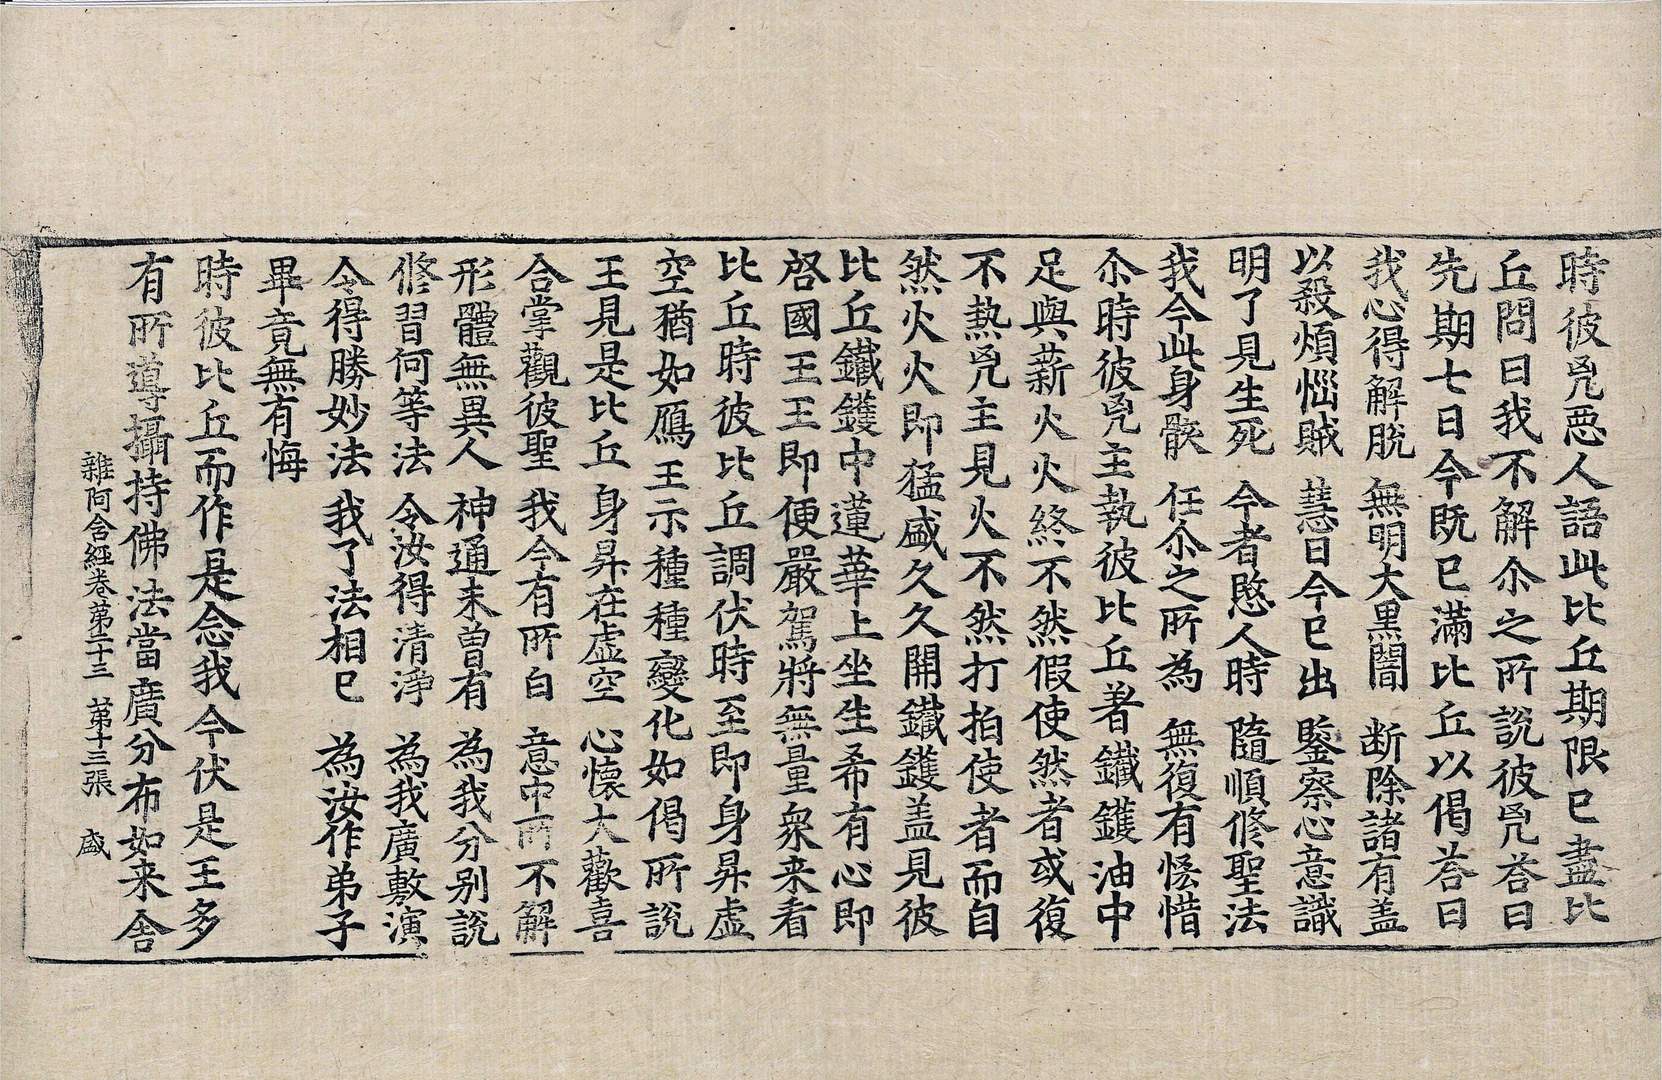 時彼兇惡人語此比丘期限已盡比
丘問曰我不解尒之所說彼兇荅曰
先期七日今既已滿比丘以偈荅曰
我心得解脫 無明大黑闇 断除諸有盖
以殺煩惱賊 慧日今已出 鑒察心意識
明了見生死 今者愍人時 隨順修聖法
我今此身骸 任尒之所為 無復有悋惜
尒時彼兇主執彼比丘著鐵鑊油中
足與薪火火終不然假使然者或復
不熱兇主見火不然打拍使者而自
然火火即猛盛久久開鐵鑊盖見彼
比丘鐵鑊中蓮華上坐生希有心即
啓國王王即便嚴駕將無量衆来看
比丘時彼比丘調伏時至即身昇虛
空猶如鴈王示種種變化如偈所說
王見是比丘 身昇在虛空 心懷大歡喜
合掌觀彼聖 我今有所白 意中所不解
形體無異人 神通未曾有 為我分別說
修習何等法 令汝得清淨 為我廣敷演
令得勝妙法 我了法相已 為汝作弟子
畢竟無有悔
時彼比丘而作是念我今伏是王多
有所導攝持佛法當廣分布如来舍
雜阿含經卷第二十三 第十三張 盛